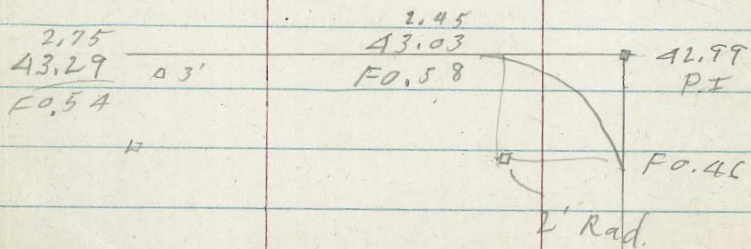 2.75
43.29
F0.54
△ 3'
2.45
43.03
F0.58
42.99
P.I
F0.46
2' Rad.